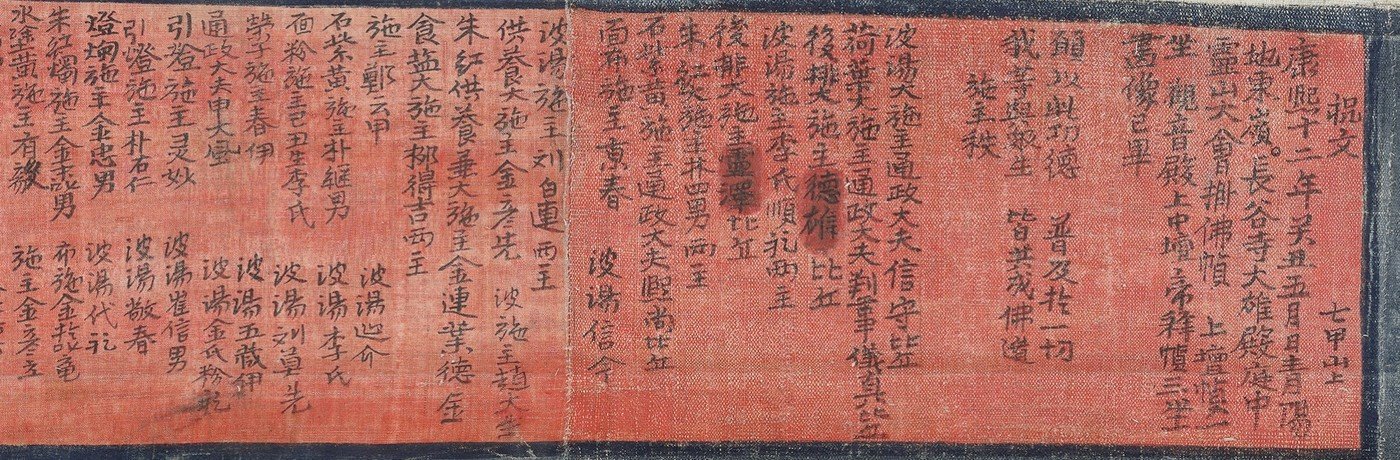 祝文 七甲山上
康熙十二年癸丑五月日青陽
地東嶺長谷寺大雄殿庭中
靈山大會掛佛幀 上壇幀一
坐 觀音殿上中壇帝釋幀三坐
畫像已畢
願以此功德 普及於一切
我等與衆生 皆共成佛道
施主秩
波湯大施主通政大夫信守比丘
荷葉大施主通政大夫判事儀真比丘
後排大施主德雄比丘
波湯施主李氏順礼两主
後排大施主靈澤比丘
朱紅施主林四男两主
石紫黄施主通政大夫熙尚比丘
面粉施主 春 波湯信令
波湯施主刘白連两主
供養大施主金彦先 波施主趙大
朱紅供養兼大施主金連業德金
食塩大施主柳得吉两主
施主鄭云甲 波湯 介
石紫黄施主朴継男 波湯李氏
面粉施主己丑生李氏 波湯刘莫先
施主春伊 波湯五蔵伊
通政大夫申大風 波湯金氏粉
引燈施主灵妙 波湯崔信男
引燈施主朴石仁 波湯敬春
燈燭施主金忠男 波湯代礼
朱紅燭施主金 男 布施金 龟
水 黄施主有 施主金彦立